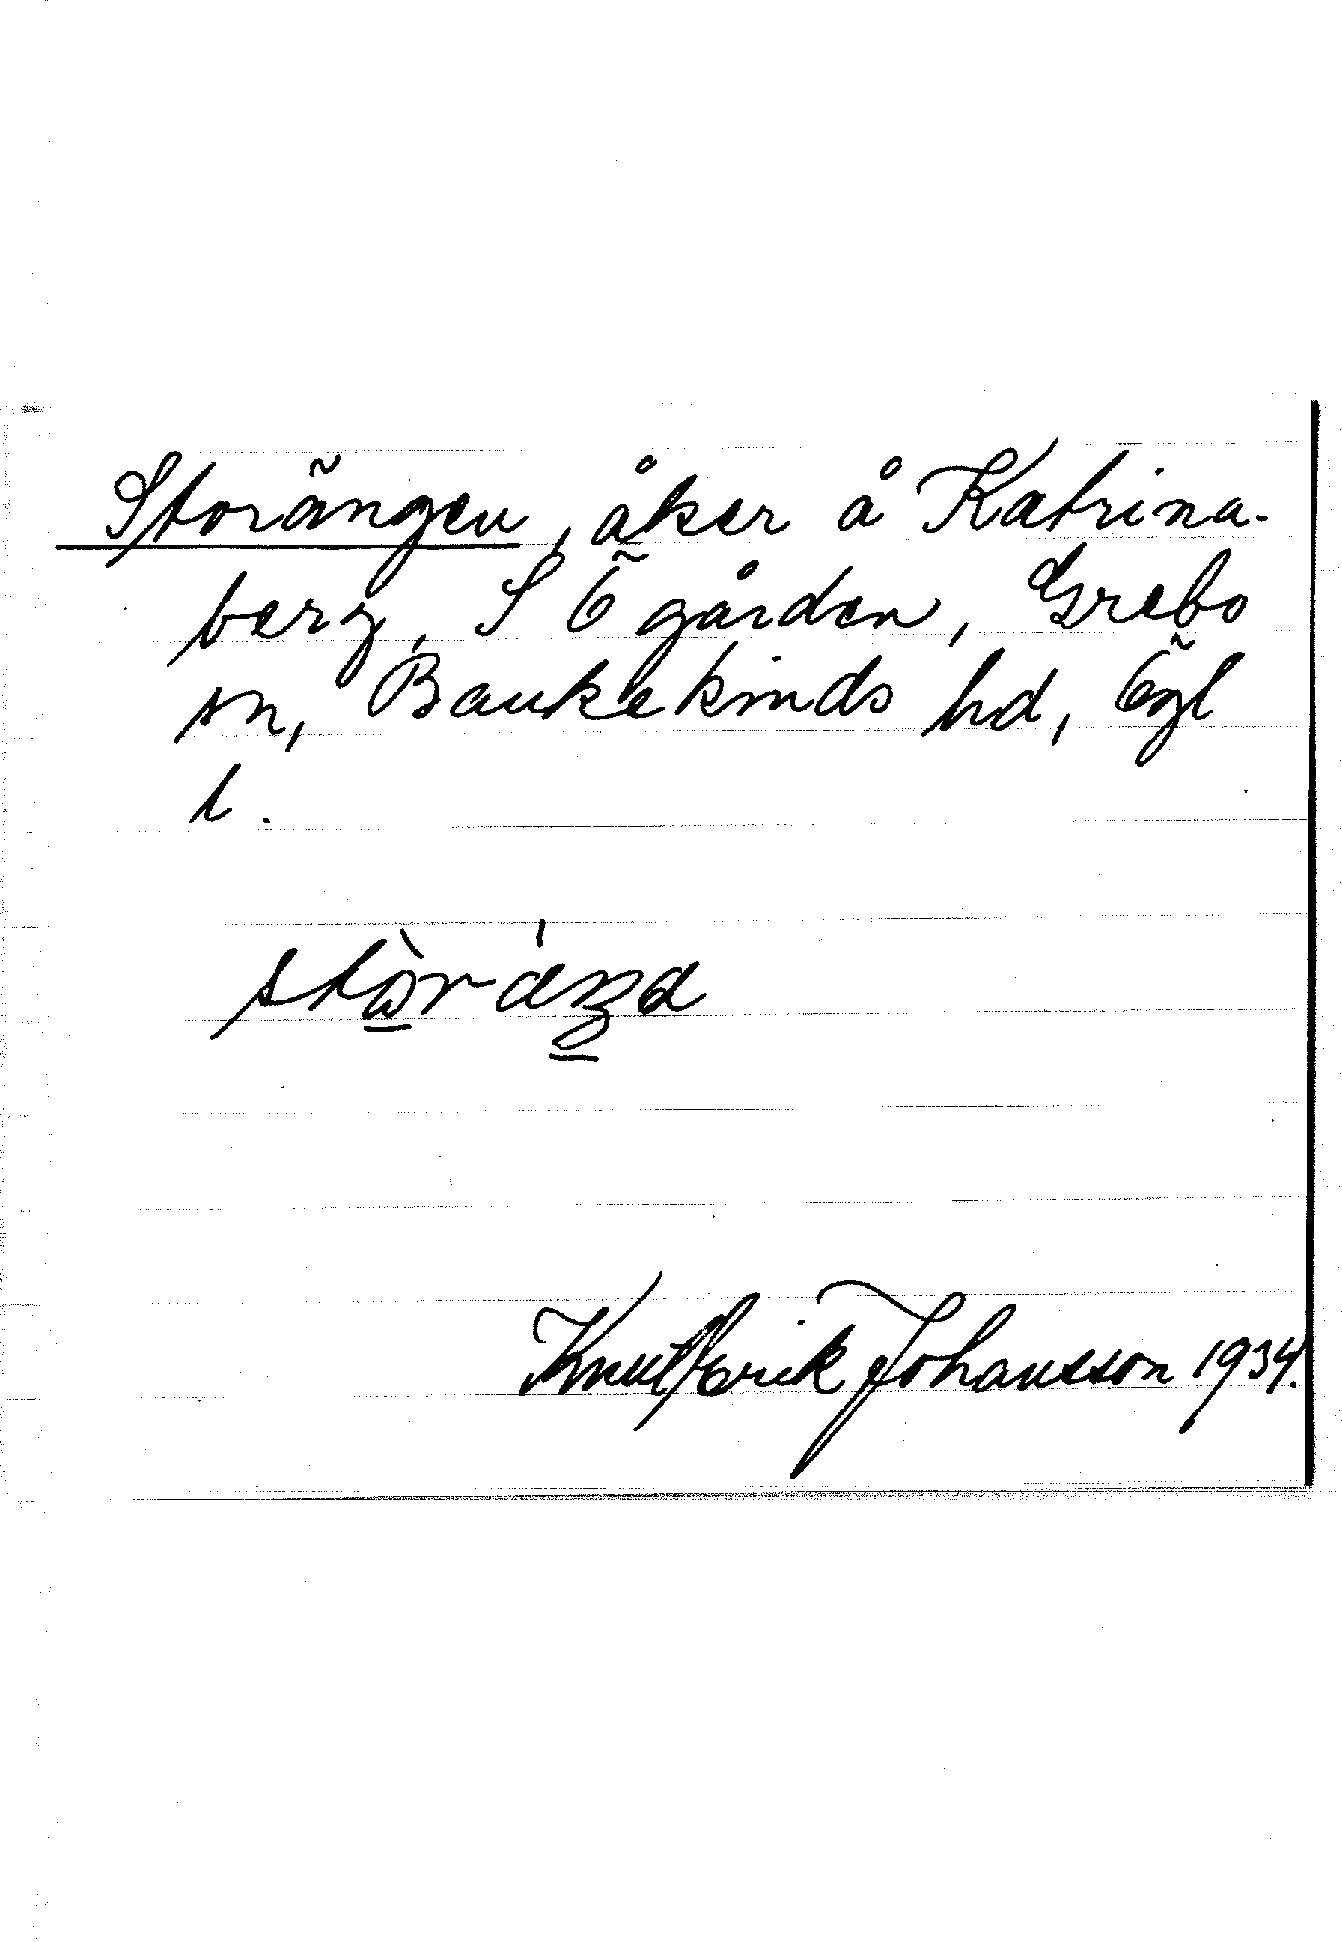 Storängen, åker å Katrina-
berg, S Ö gården, Grebo
sn, Bankekinds hd, Ögl
l.
Knut Erik Johansson 1934.